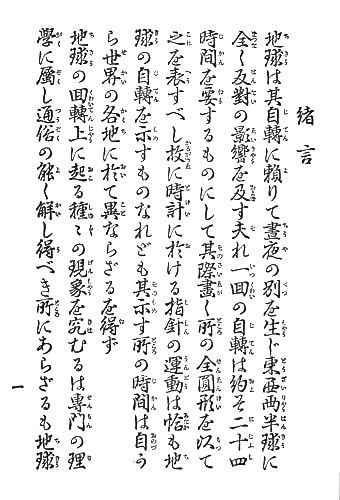 緒言
地球は其自轉に賴りて晝夜の別を生じ東西兩半球に
全く反對の影響を及す夫れ一回の自轉は約そ二十四
時間を要するものにして其際畫く所の全圓形を以て
之を表すべし故に時計に於ける指針の運動は恰も地
球の自轉を示すものなれども其示す所の時間は自か
ら世界の各地に於て異ならざるを得ず
地球の回轉上に起る種々の現象を究むるは專門の理
學に屬し通俗の能く解し得べき所にあらざるも地球
一